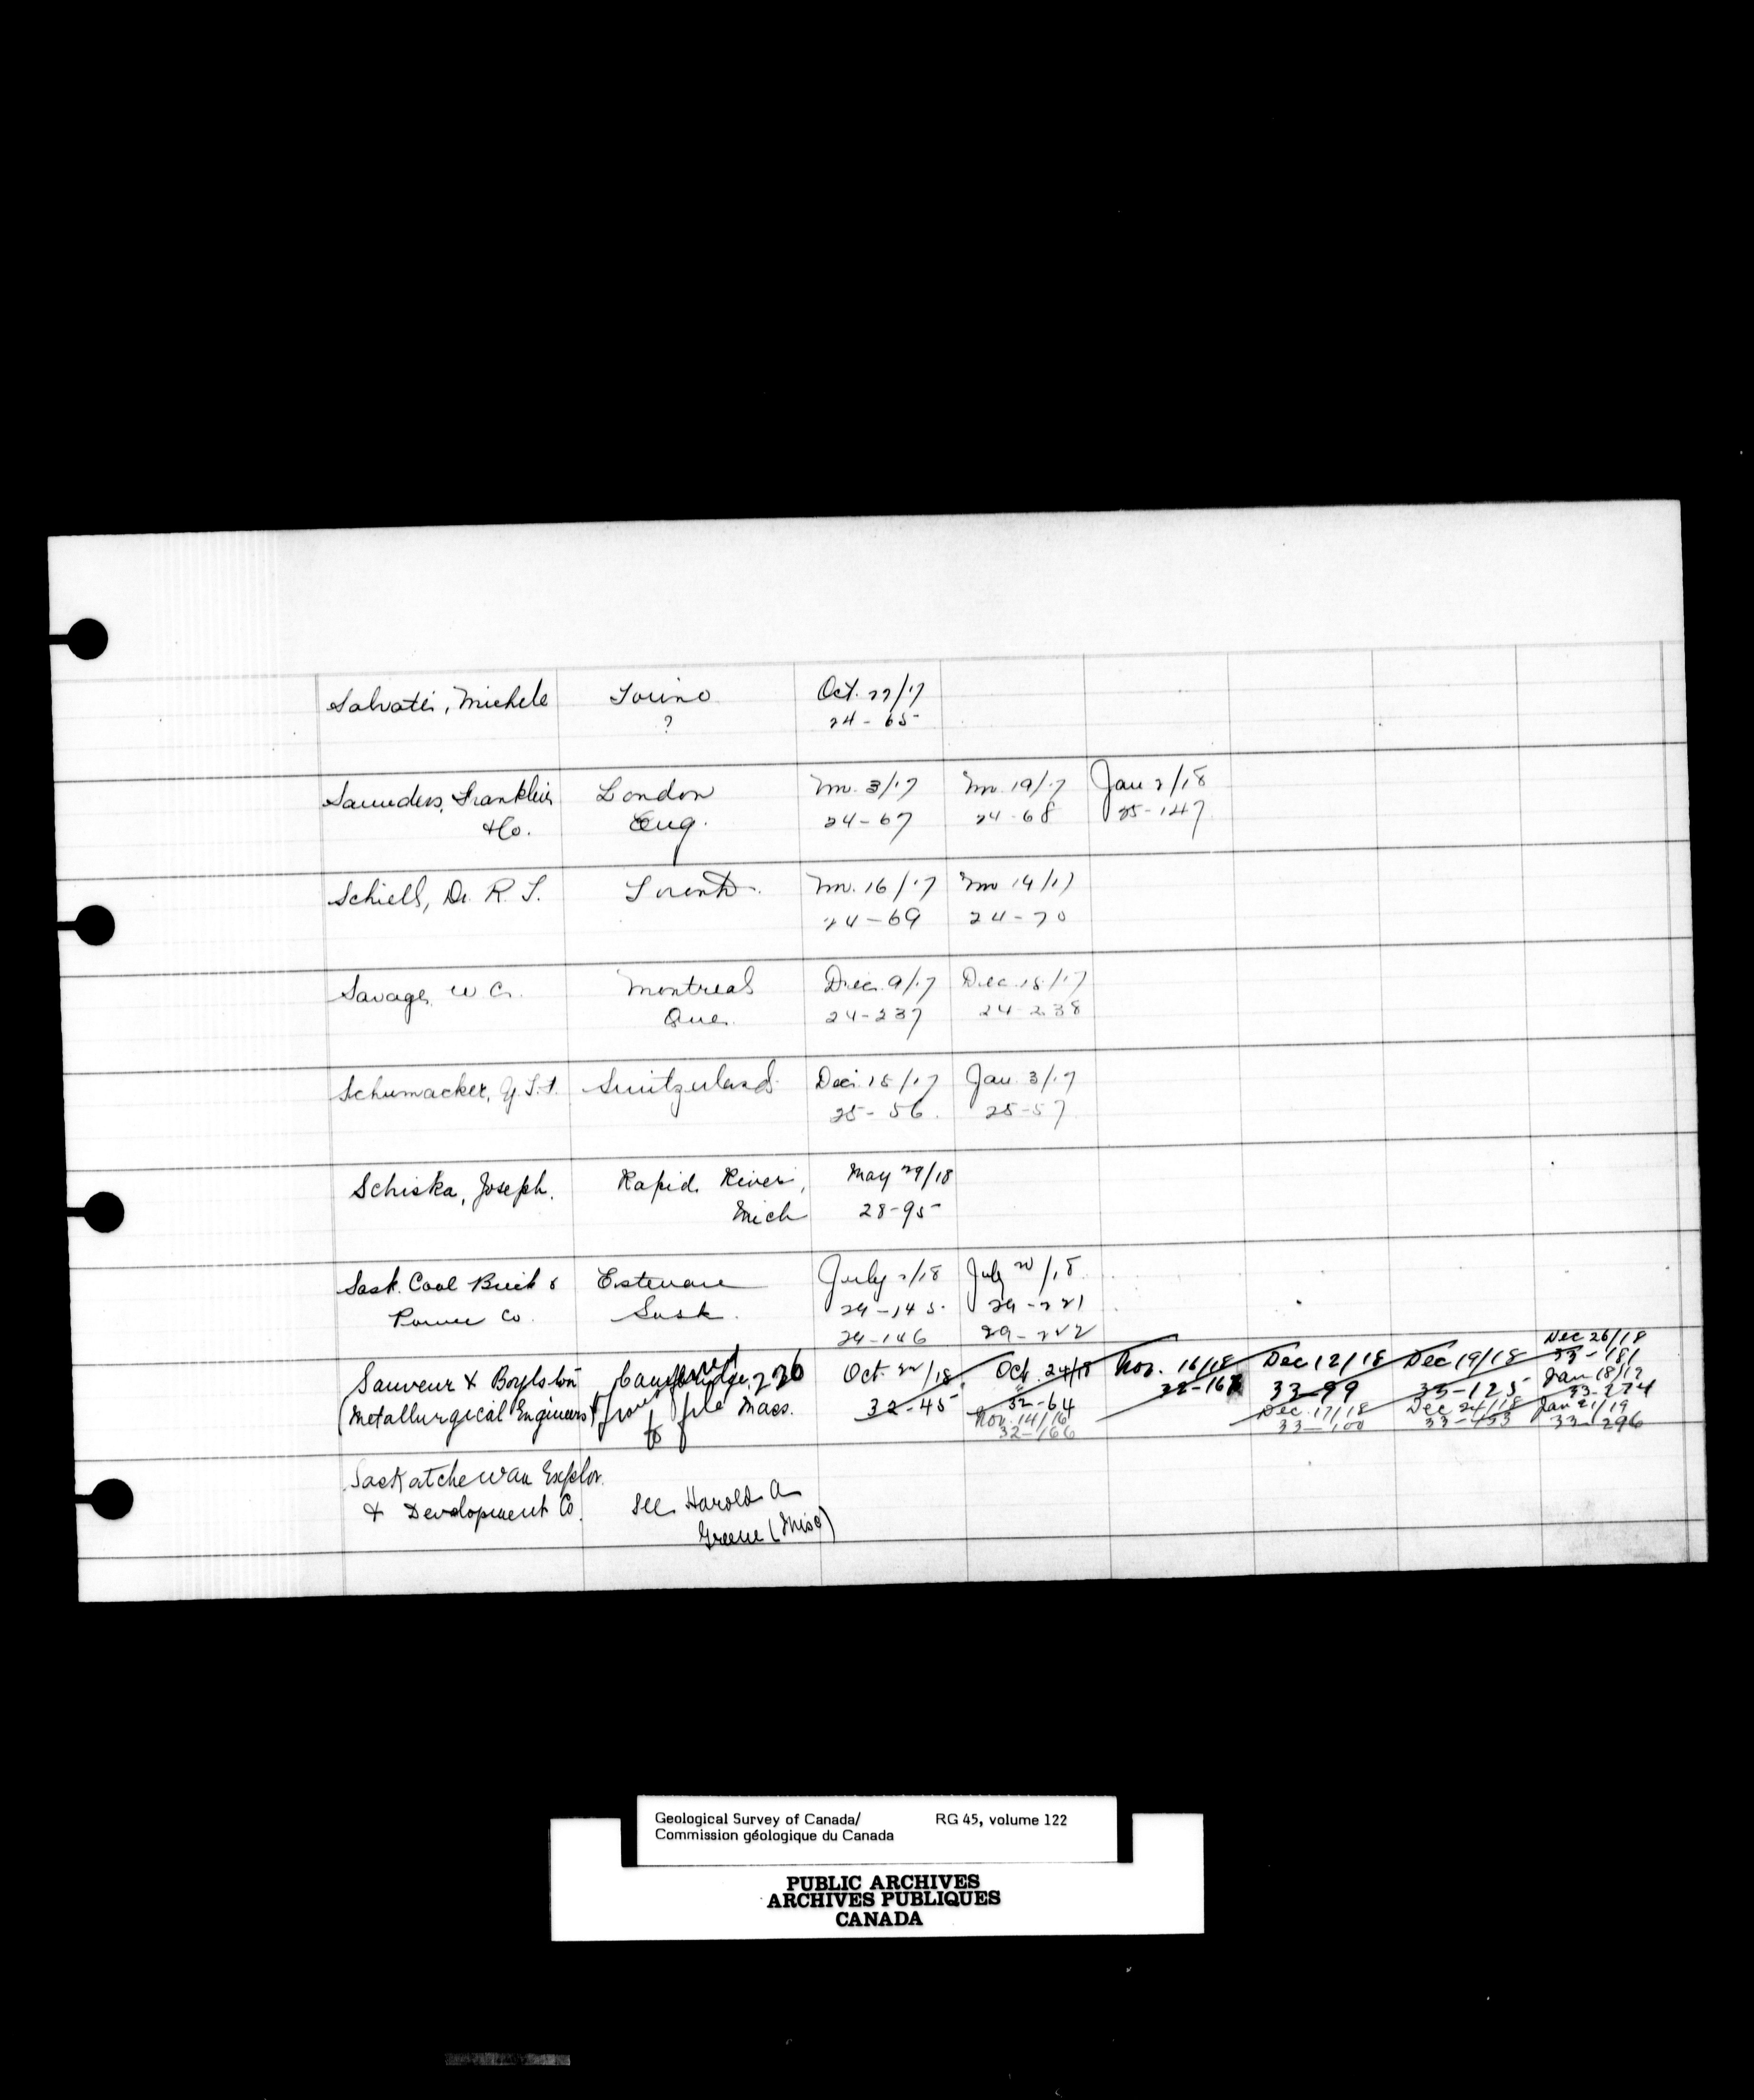 Salvati, Michele Torino Oct. 22/17
? 24-65
Saunders, Franklin London Nov. 3/17 Nov. 19/17 Jan 2/18
& Co. Eng. 24-67 24-68 25-147
Schiell, Dr. R. T. Toronto. Nov. 16/17 Nov 14/17
24-69 24-70
Savage, W C. Montreal Dec. 9/17 Dec. 15/17
Que. 24-237 24-238
Schumacker, Switzerland Dec. 15/17 Jan. 3/17
25-56. 25-57
Schiska, Joseph. Rapid River, May 29/18
Mich 28-95
Sask. Coal Brick & Estevan July 2/18 July 20/18
Power Co. Sask. 29-145. 29-221
29-146 29-222
Dec 26/18
Sauveur & Boylston Cambridge, 226 Oct. 22/18 Oct. 24/18 Nov. 16/18 Dec 12/18 Dec 19/18 33-181
32-45 32-64 32-167 33-99 33-125 Jan 18/19
(Metallurgical Engineers) file Mass. Nov. 14/18 Dec. 17/18 Dec 24/18 33-274
32-166 33-100 33-153 Jan 21/19
33-296
Saskatchewan Explor.
& Development Co. See Harold A
Greene (Misc)
Geological Survey of Canada/ RG 45, volume 122
Commission géologique du Canada
PUBLIC ARCHIVES
ARCHIVES PUBLIQUES
CANADA